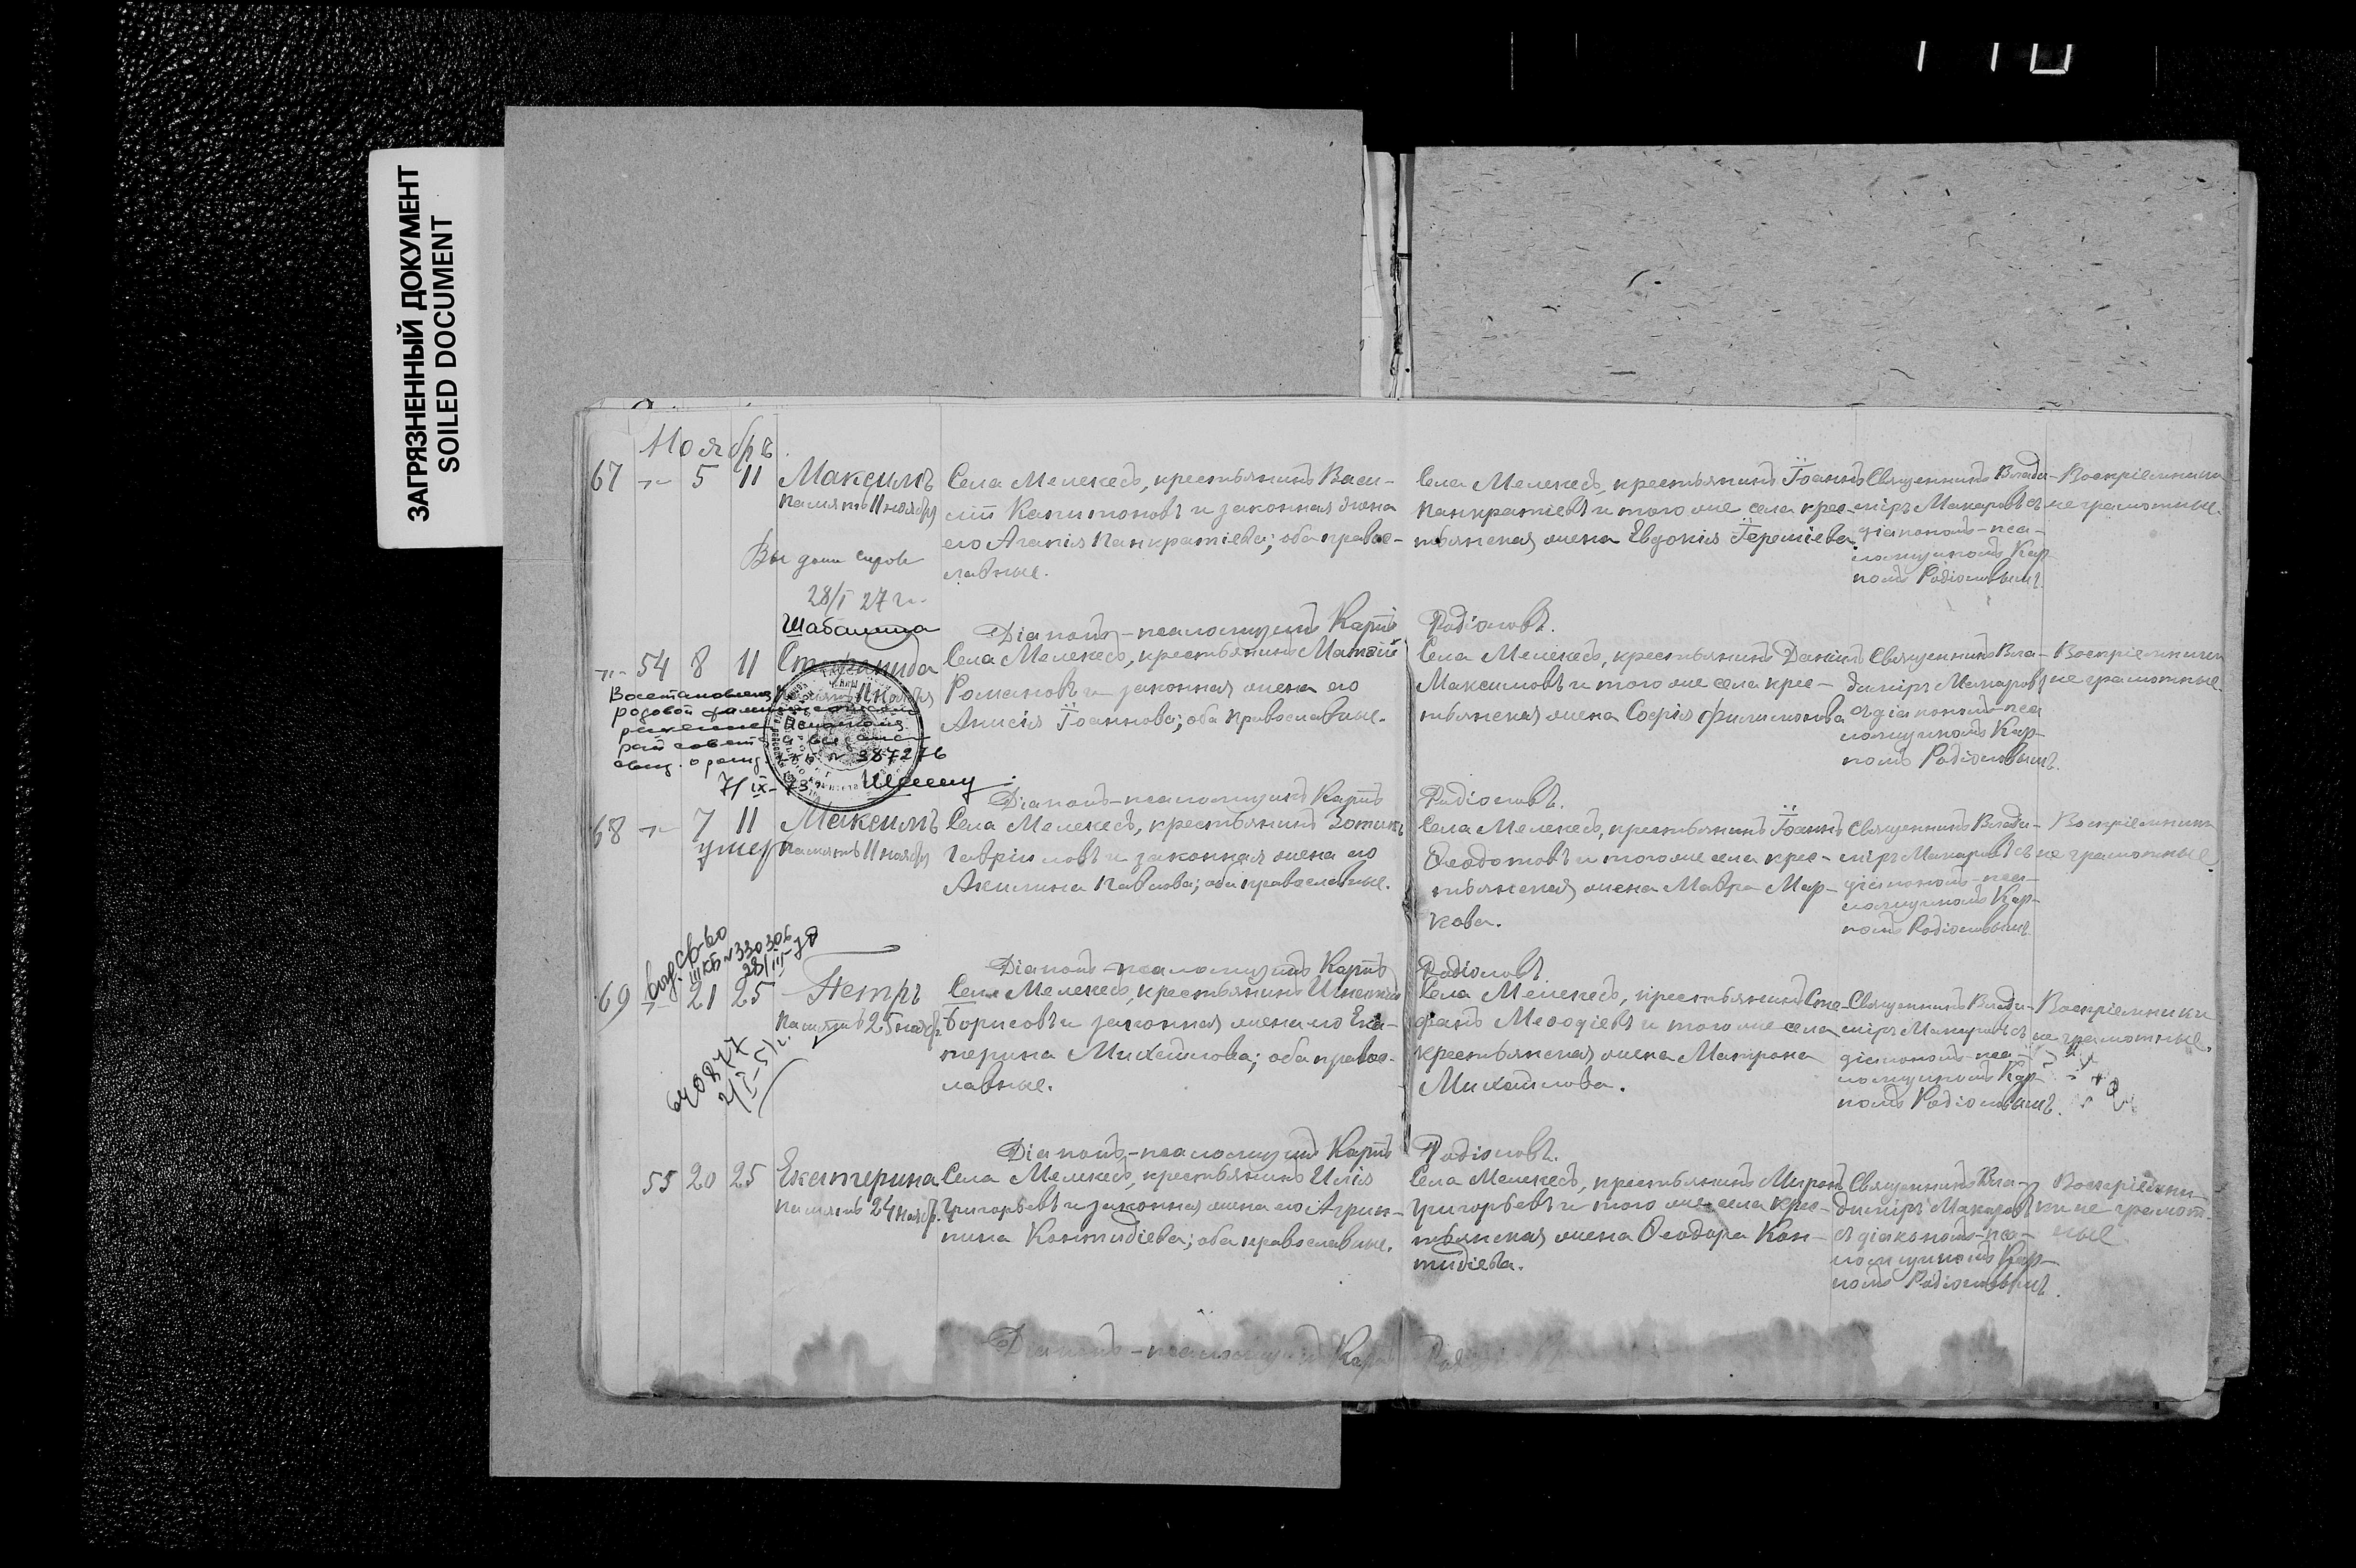 ЗАГРЯЗНЕННЫЙ ДОКУМЕНТ
SOILED DOCUMENT
Ноябрь.
67 5 11 Максимъ
память 11 ноября
Села Мелекесъ, крестьянинъ Васи-
лій Капитоновъ и законная жена
его Агапія Панкратіева; оба правос-
лавные.
Села Мелекесъ, крестьянинъ Іоаннъ
Панкратіевъ и того же села крес-
тьянская жена Евдокія Іереміева.
Священникъ Влади-
міръ Макаровъ съ
діакономъ-пса-
ломщикомъ Кар-
помъ Родіоновымъ.
Воспріемники
не грамотные.
28/I 27 г.
Шабалина
Діаконъ-псаломщикъ Карпъ Родіоновъ.
54 8 11 Стефанида
память 11 ноября
Села Мелекесъ, крестьянинъ Матвій
Романовъ и законная жена его
Анисія Іоаннова; оба православные.
Села Мелекесъ, крестьянинъ Даніилъ
Максимовъ и того же села крес-
тьянская жена Софія Филимонова
Священникъ Вла-
диміръ Макаровъ
съ діакономъ-пса
ломщикомъ Кар-
помъ Родіоновымъ.
Воспріемники
не грамотные.
Восстановлена
родовой
№ 387276
7/IX-73
Діаконъ-псаломщикъ Карпъ Родіоновъ.
68 7 11 Максимъ
умер память 11 ноября
Села Мелекесъ, крестьянинъ Зотикъ
Гавріиловъ и законная жена его
Акилина Павлова; оба православные.
Села Мелекесъ, крестьянинъ Іоаннъ
Ѳеодотовъ и того же села крес-
тьянская жена Мавра Мар-
кова.
Священникъ Влади-
міръ Макаровъ съ
діакономъ-пса-
ломщикомъ Кар-
помъ Родіоновымъ.
Воспріемники
не грамотные.
Діаконъ-псаломщикъ Карпъ Родіоновъ.
№ 330306
69 21 25 Петръ
память 25 ноябр.
640877
Села Мелекесъ, крестьянинъ Игнатій
Борисовъ и законная жена его Ека-
терина Михаилова; оба правос-
лавные.
Села Мелекесъ, крестьянинъ Сте-
фанъ Меѳодіевъ и того же села
крестьянская жена Матрона
Михаилова.
Священникъ Влади-
міръ Макаровъ съ
діакономъ-пса-
ломщикомъ Кар-
помъ Родіоновымъ.
Воспріемники
не грамотные.
Діаконъ-псаломщикъ Карпъ Родіоновъ.
55 20 25 Екатерина
память 24 ноябр.
Села Мелекесъ, крестьянинъ Илія
Григорьевъ и законная жена его Агрип-
пина Контидіева; оба православные.
Села Мелекесъ, крестьянинъ Миронъ
Григорьевъ и того же села крес-
тьянская жена Ѳеодора Кон-
тидіева.
Священникъ Вла-
диміръ Макаровъ
съ діакономъ-пса-
ломщикомъ Кар-
помъ Родіоновымъ.
Воспріемни-
ки не грамот-
ные.
Діаконъ-псаломщикъ Карпъ